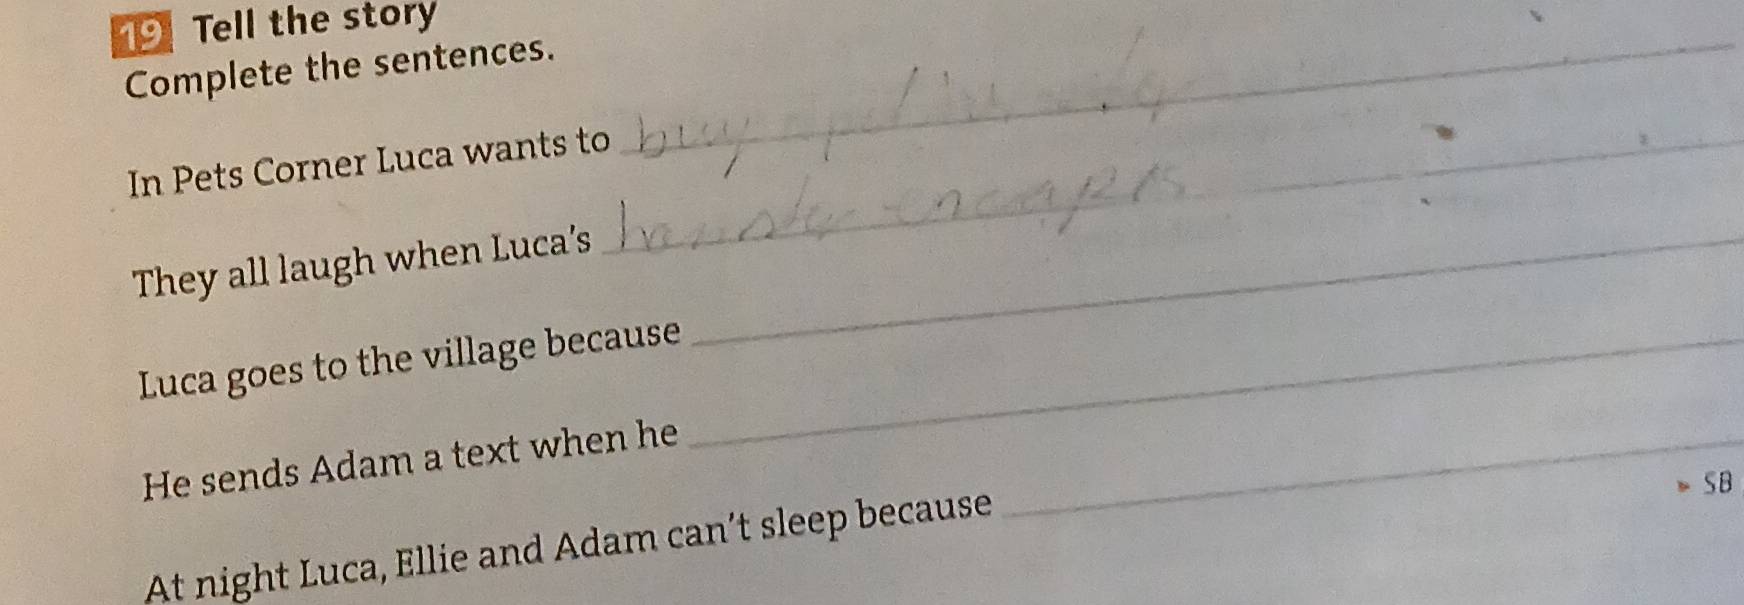 19 Tell the story
Complete the sentences.
In Pets Corner Luca wants to buy
They all laugh when Luca's
Luca goes to the village because
He sends Adam a text when he
At night Luca, Ellie and Adam can't sleep because
▸ SB